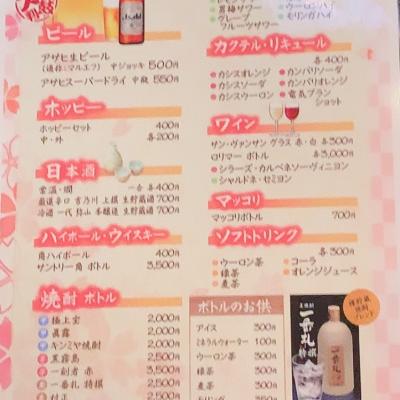 ビール
アサヒ生ビール
(通称:マルエフ) 中ジョッキ 500円
アサヒスーパードライ 中瓶 550円
ホッピー
ホッピーセット 400円
中・外 各200円
日本酒
常温・燗 一合 各400円
厳選辛口 吉乃川 上撰 生貯蔵酒 700円
冷酒 一代 弥山 本醸造 生貯蔵酒 700円
ハイボール・ウイスキー
角ハイボール 400円
サントリー角 ボトル 3,500円
焼酎 ボトル
極上宝 2,000円
眞露 2,000円
キンミヤ焼酎 2,000円
黒霧島 2,500円
一刻者 赤 3,500円
一番札 特撰 2,500円
村正 2,500円
男梅サワー
グレープフルーツサワー
ウーロンハイ
モリンガハイ
カクテル・リキュール
各400円
カシスオレンジ
カシスソーダ
カシスウーロン
カンパリソーダ
カンパリオレンジ
電気ブランショット
ワイン
サン・ヴァンサン グラス 赤・白 各300円
ロリマー ボトル 各3,000円
シラーズ・カルベネソーヴィニヨン
シャルドネ・セミヨン
マッコリ
マッコリボトル 700円
ソフトドリンク
各300円
ウーロン茶
緑茶
麦茶
コーラ
オレンジジュース
ボトルのお供
アイス 300円
ミネラルウォーター 100円
ウーロン茶 300円
緑茶 300円
麦茶 300円
350円
一番札
特撰
樽貯蔵
焼酎
ブレンド
Asahi